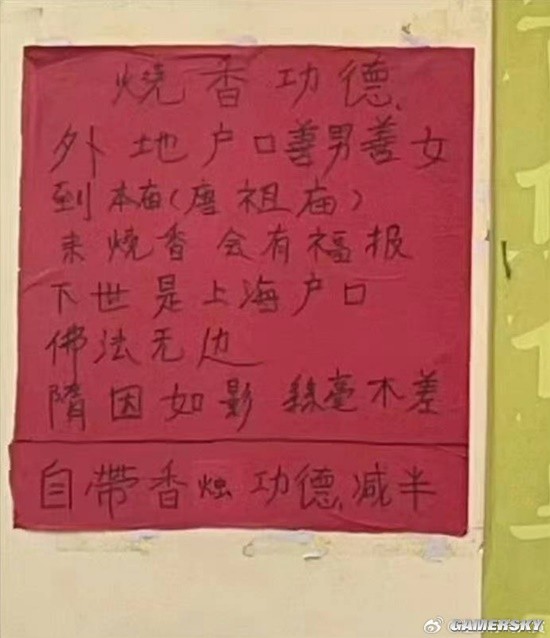 烧香功德.
外地户口善男善女
到本庙(唐祖庙)
来烧香会有福报
下世是上海户口
佛法无边
隋因如影 絲毫不差
自带香烛功德减半
GAMERSKY